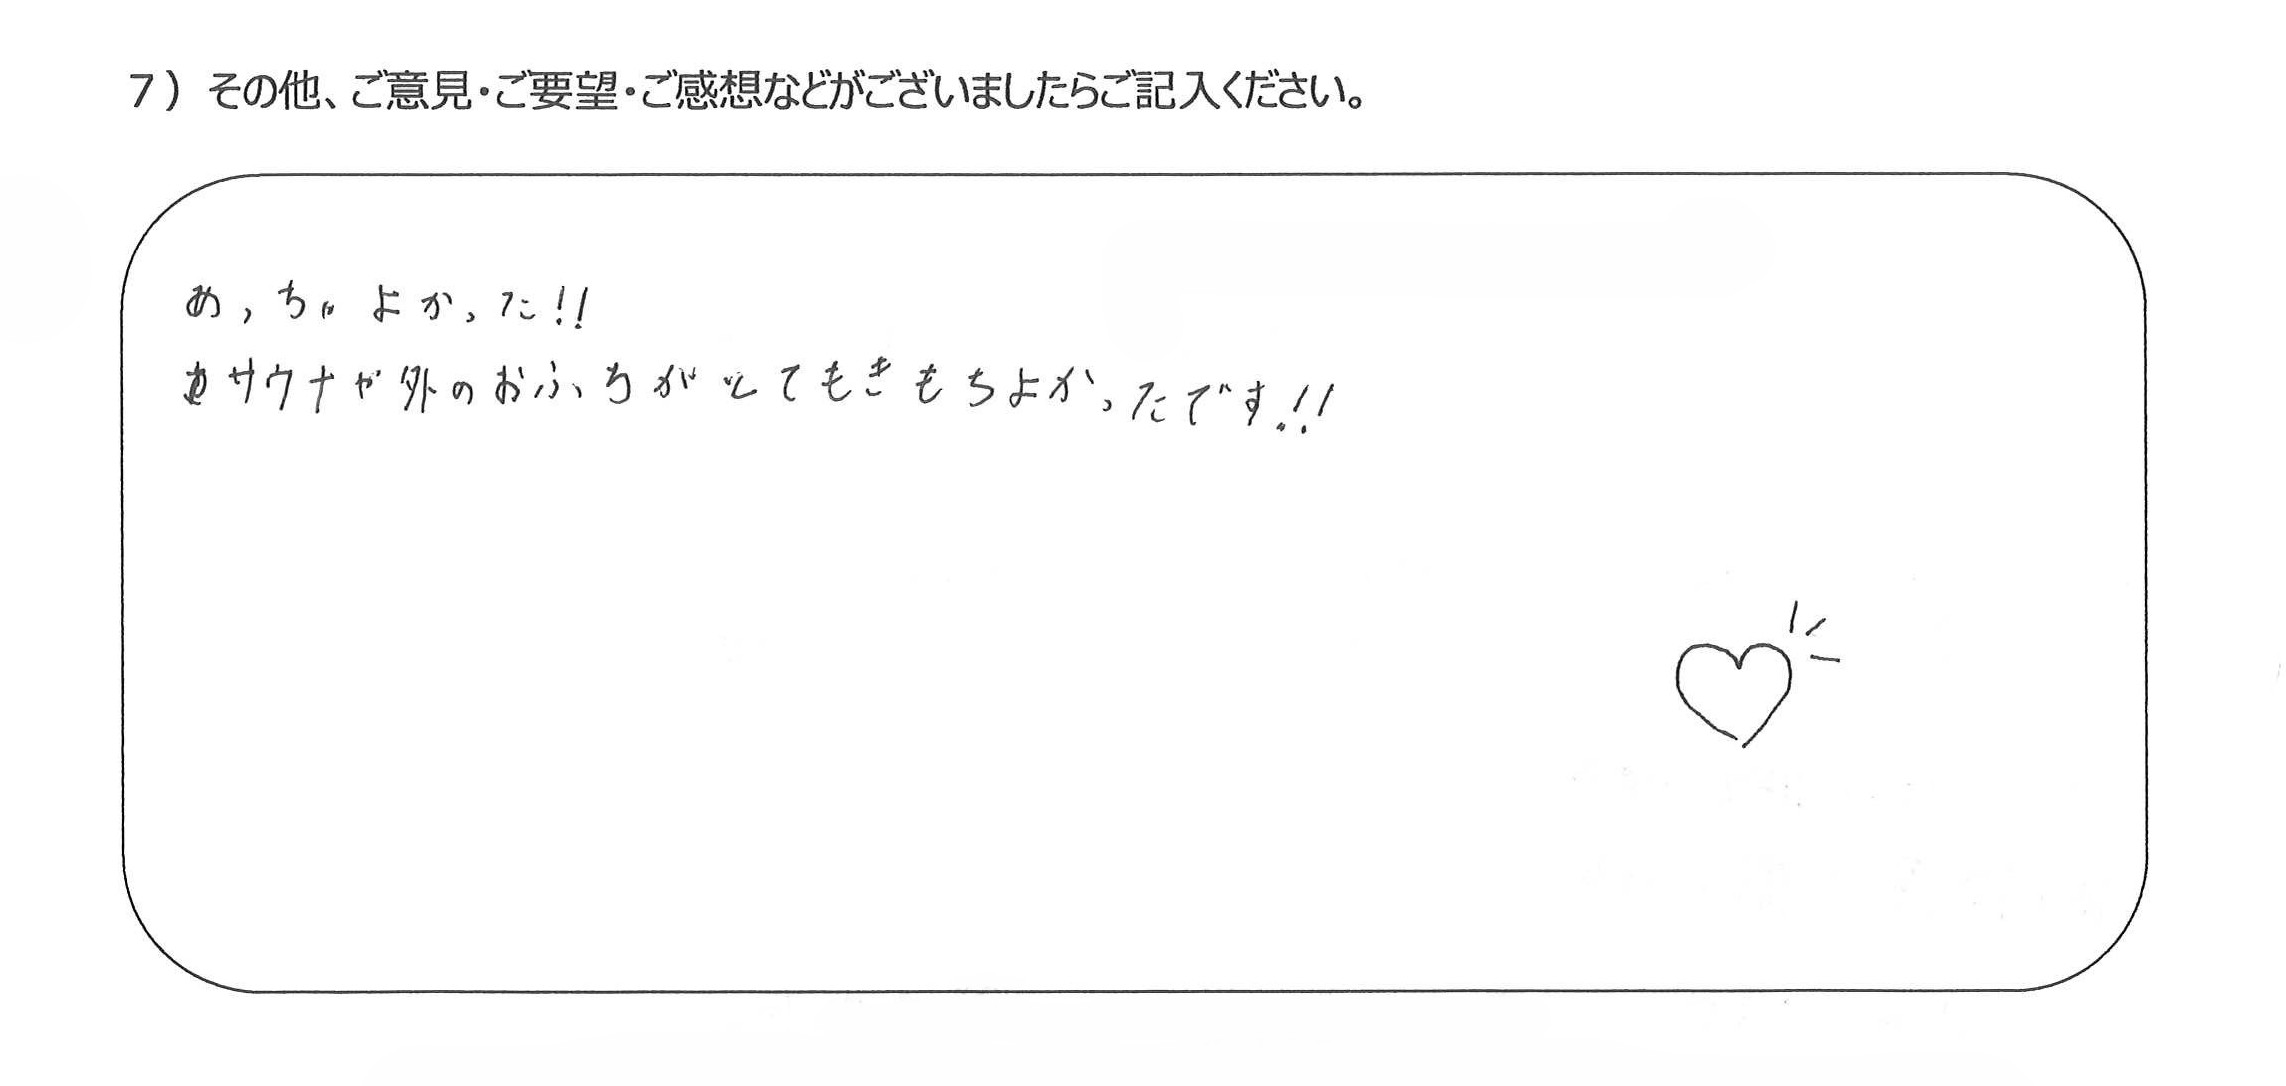 7) その他、ご意見・ご要望・ご感想などがございましたらご記入ください。
めっちゃよかった!!
サウナや外のおふろがとてもきもちよかったです!!